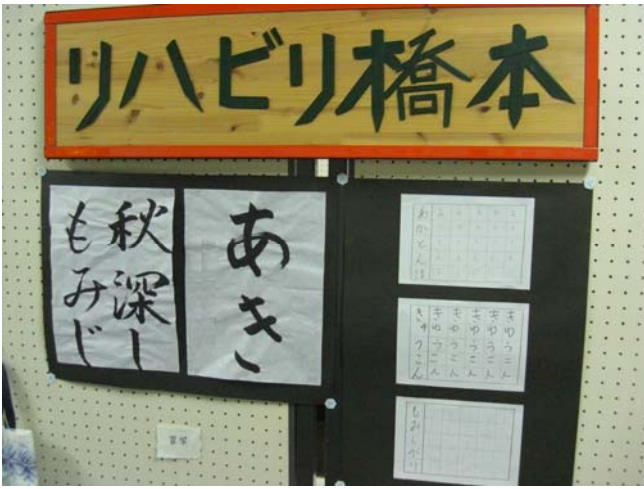 リハビリ橋本
あき
秋深し
もみじ
あかとんぼ
きゅうこん
きゅうこん
きゅうこん
きゅうこん
きゅうこん
きゅうこん
もみじがり
習字